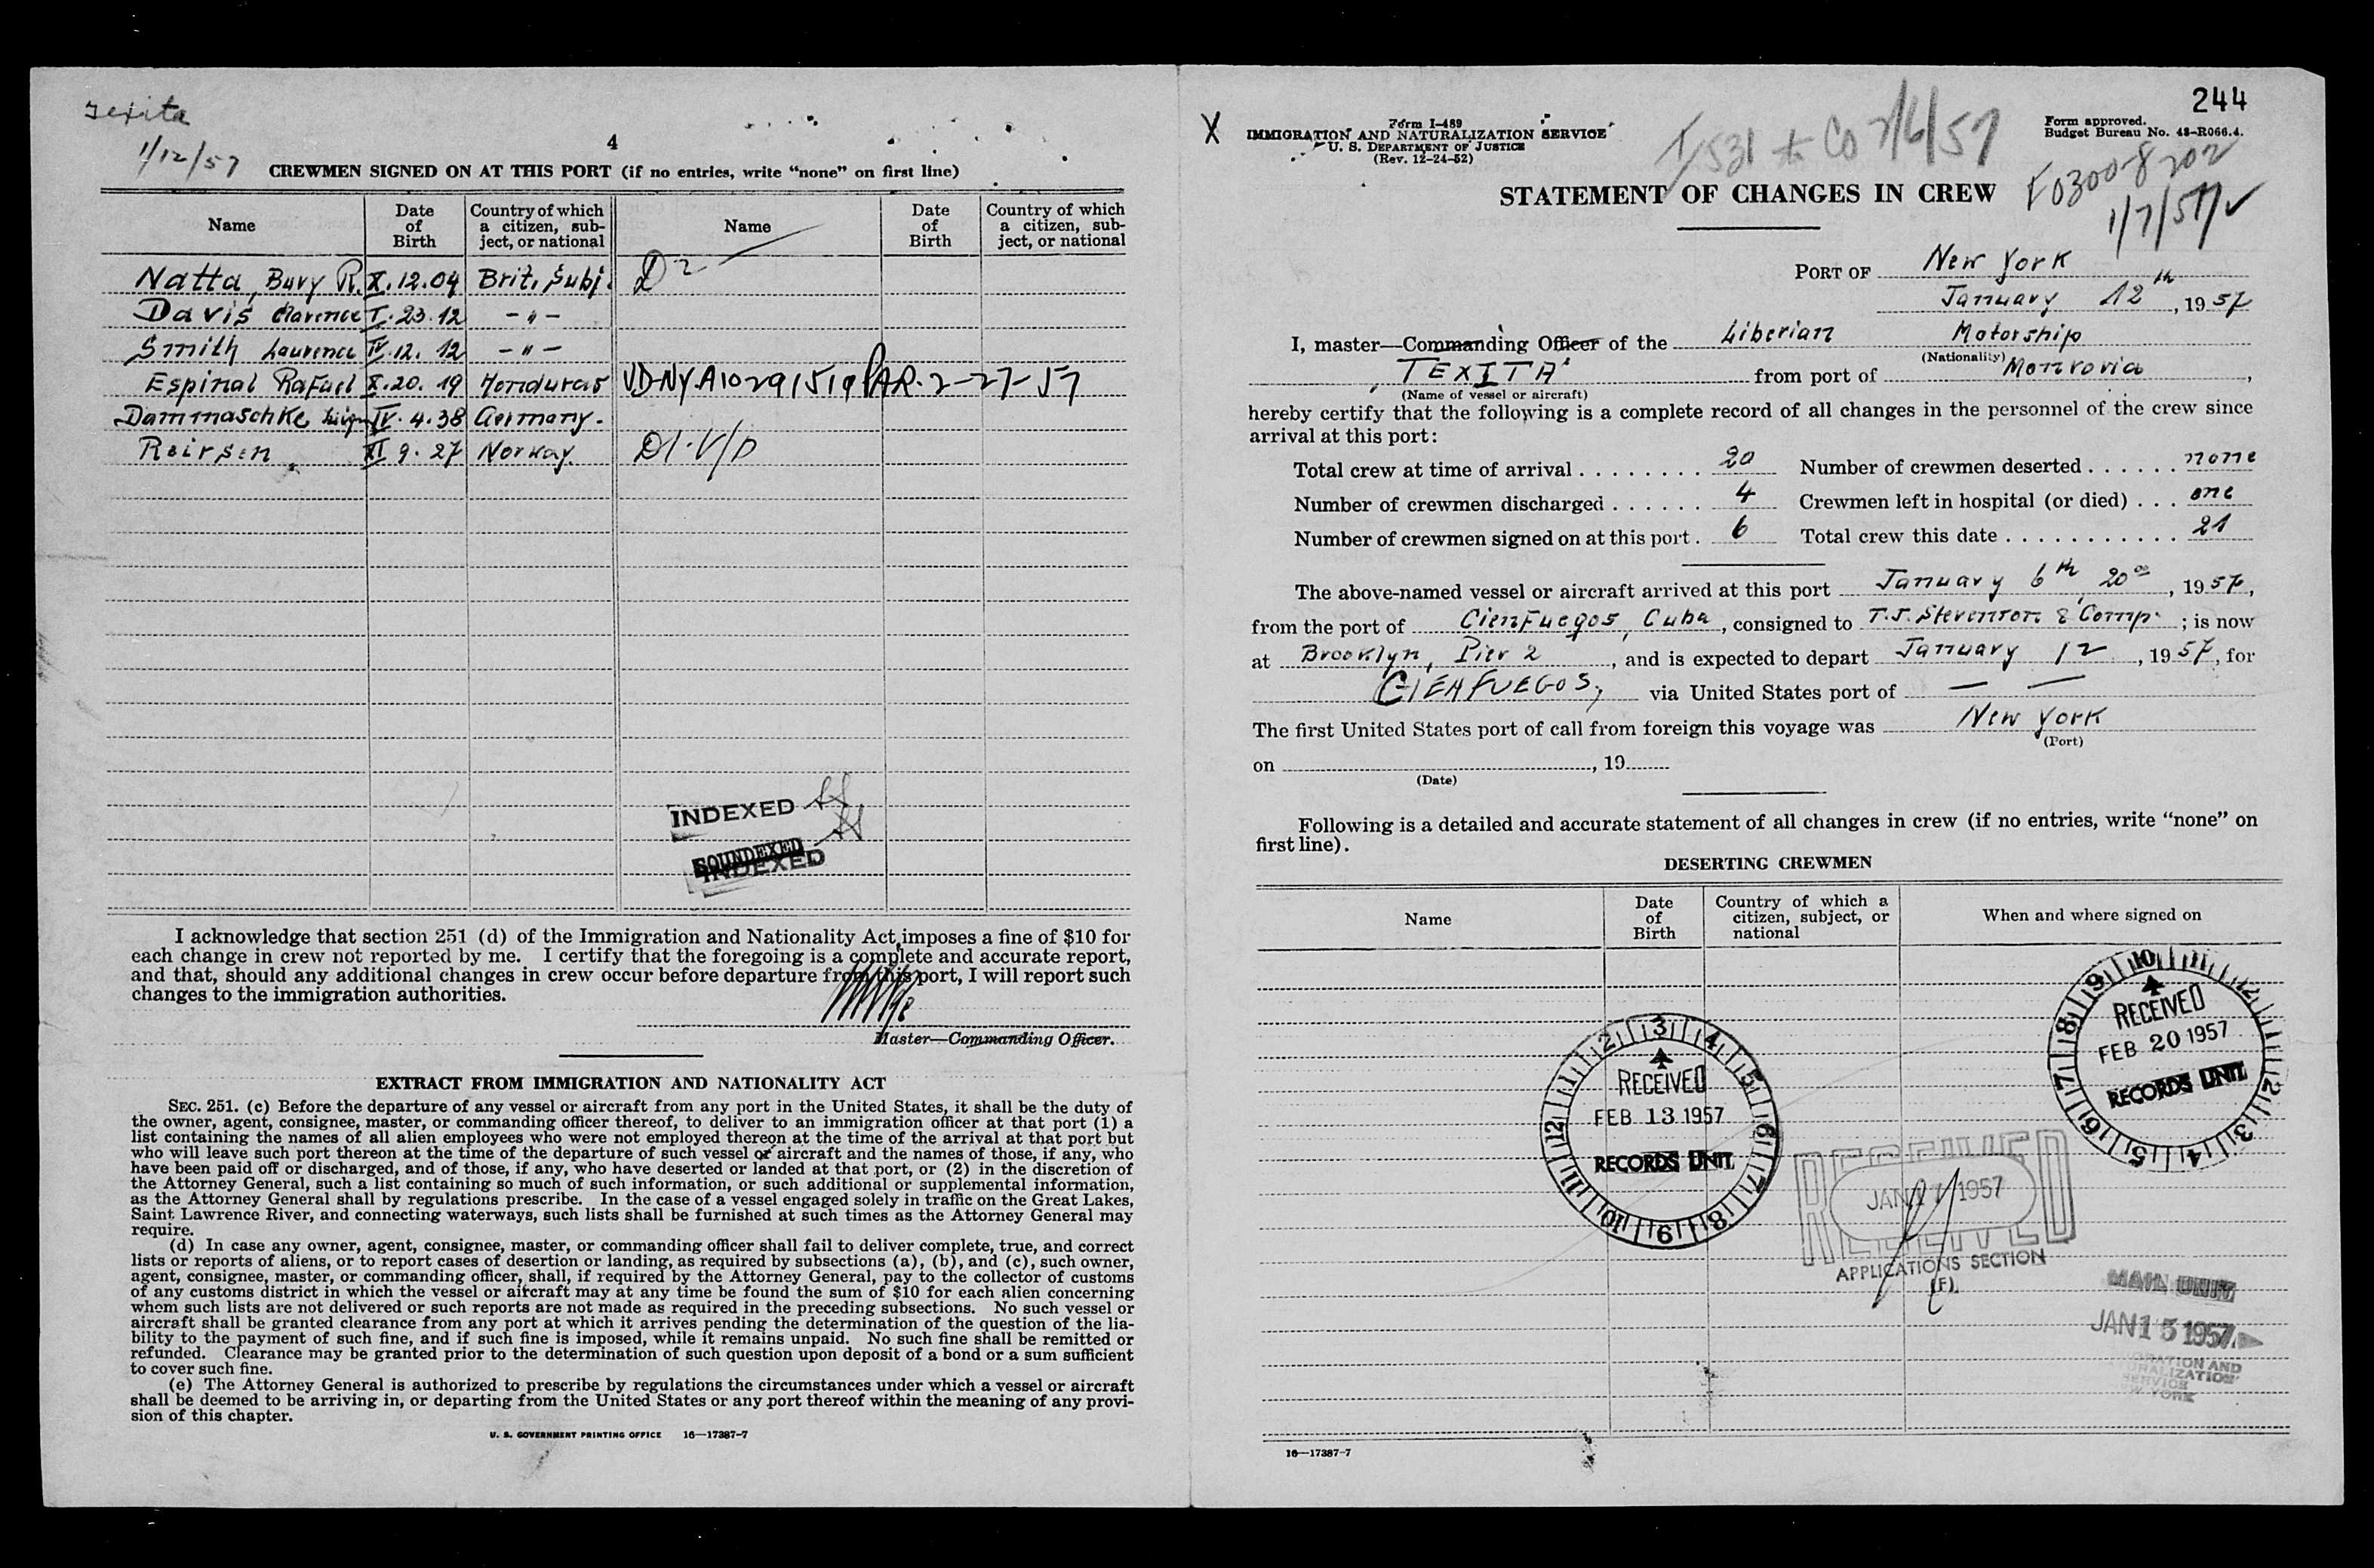 Texita
1/12/57
4
CREWMEN SIGNED ON AT THIS PORT (if no entries, write “none” on first line)
Name
Date of Birth
Country of which a citizen, subject, or national
Name
Date of Birth
Country of which a citizen, subject, or national
Natta, Bury R. X.12.04 Brit. Subj. D2
Davis Clarence I.23.12 -"-
Smith Laurence IV.12.12 -"-
Espinal Rafael X.20.19 Honduras VD-NY-A10291519 PAR. 2-27-57
Dammaschke IV.4.38 Germany.
Reirsen XI 9.27 Norway. D1-V/D
INDEXED
SOUNDEXED
INDEXED
I acknowledge that section 251 (d) of the Immigration and Nationality Act imposes a fine of $10 for
each change in crew not reported by me. I certify that the foregoing is a complete and accurate report,
and that, should any additional changes in crew occur before departure from this port, I will report such
changes to the immigration authorities.
Master—Commanding Officer.
EXTRACT FROM IMMIGRATION AND NATIONALITY ACT
SEC. 251. (c) Before the departure of any vessel or aircraft from any port in the United States, it shall be the duty of
the owner, agent, consignee, master, or commanding officer thereof, to deliver to an immigration officer at that port (1) a
list containing the names of all alien employees who were not employed thereon at the time of the arrival at that port but
who will leave such port thereon at the time of the departure of such vessel or aircraft and the names of those, if any, who
have been paid off or discharged, and of those, if any, who have deserted or landed at that port, or (2) in the discretion of
the Attorney General, such a list containing so much of such information, or such additional or supplemental information,
as the Attorney General shall by regulations prescribe. In the case of a vessel engaged solely in traffic on the Great Lakes,
Saint Lawrence River, and connecting waterways, such lists shall be furnished at such times as the Attorney General may
require.
(d) In case any owner, agent, consignee, master, or commanding officer shall fail to deliver complete, true, and correct
lists or reports of aliens, or to report cases of desertion or landing, as required by subsections (a), (b), and (c), such owner,
agent, consignee, master, or commanding officer, shall, if required by the Attorney General, pay to the collector of customs
of any customs district in which the vessel or aircraft may at any time be found the sum of $10 for each alien concerning
whom such lists are not delivered or such reports are not made as required in the preceding subsections. No such vessel or
aircraft shall be granted clearance from any port at which it arrives pending the determination of the question of the lia-
bility to the payment of such fine, and if such fine is imposed, while it remains unpaid. No such fine shall be remitted or
refunded. Clearance may be granted prior to the determination of such question upon deposit of a bond or a sum sufficient
to cover such fine.
(e) The Attorney General is authorized to prescribe by regulations the circumstances under which a vessel or aircraft
shall be deemed to be arriving in, or departing from the United States or any port thereof within the meaning of any provi-
sion of this chapter.
U. S. GOVERNMENT PRINTING OFFICE 16—17387-7
X
Form I-489
IMMIGRATION AND NATURALIZATION SERVICE
U. S. DEPARTMENT OF JUSTICE
(Rev. 12-24-52)
244
Form approved.
Budget Bureau No. 43-R066.4.
0300-8202
1/7/57
STATEMENT OF CHANGES IN CREW
PORT OF New York
January 12th, 1957
I, master—Commanding Officer of the Liberian Motorship
(Nationality)
"TEXITA" from port of Monrovia,
(Name of vessel or aircraft)
hereby certify that the following is a complete record of all changes in the personnel of the crew since
arrival at this port:
Total crew at time of arrival 20 Number of crewmen deserted none
Number of crewmen discharged 4 Crewmen left in hospital (or died) one
Number of crewmen signed on at this port. 6 Total crew this date 21
The above-named vessel or aircraft arrived at this port January 6th, 20oo, 1957,
from the port of Cienfuegos, Cuba, consigned to T.J. Stevenson & Comp. ; is now
at Brooklyn, Pier 2, and is expected to depart January 12, 1957, for
CIENFUEGOS, via United States port of — —
The first United States port of call from foreign this voyage was New York
(Port)
on , 19
(Date)
Following is a detailed and accurate statement of all changes in crew (if no entries, write “none” on
first line).
DESERTING CREWMEN
Name
Date of Birth
Country of which a citizen, subject, or national
When and where signed on
RECEIVED
FEB 20 1957
RECORDS UNIT
RECEIVED
FEB 13 1957
RECORDS UNIT
RECEIVED
JAN 17 1957
APPLICATIONS SECTION
(F)
MAIL UNIT
JAN 15 1957
16—17387-7